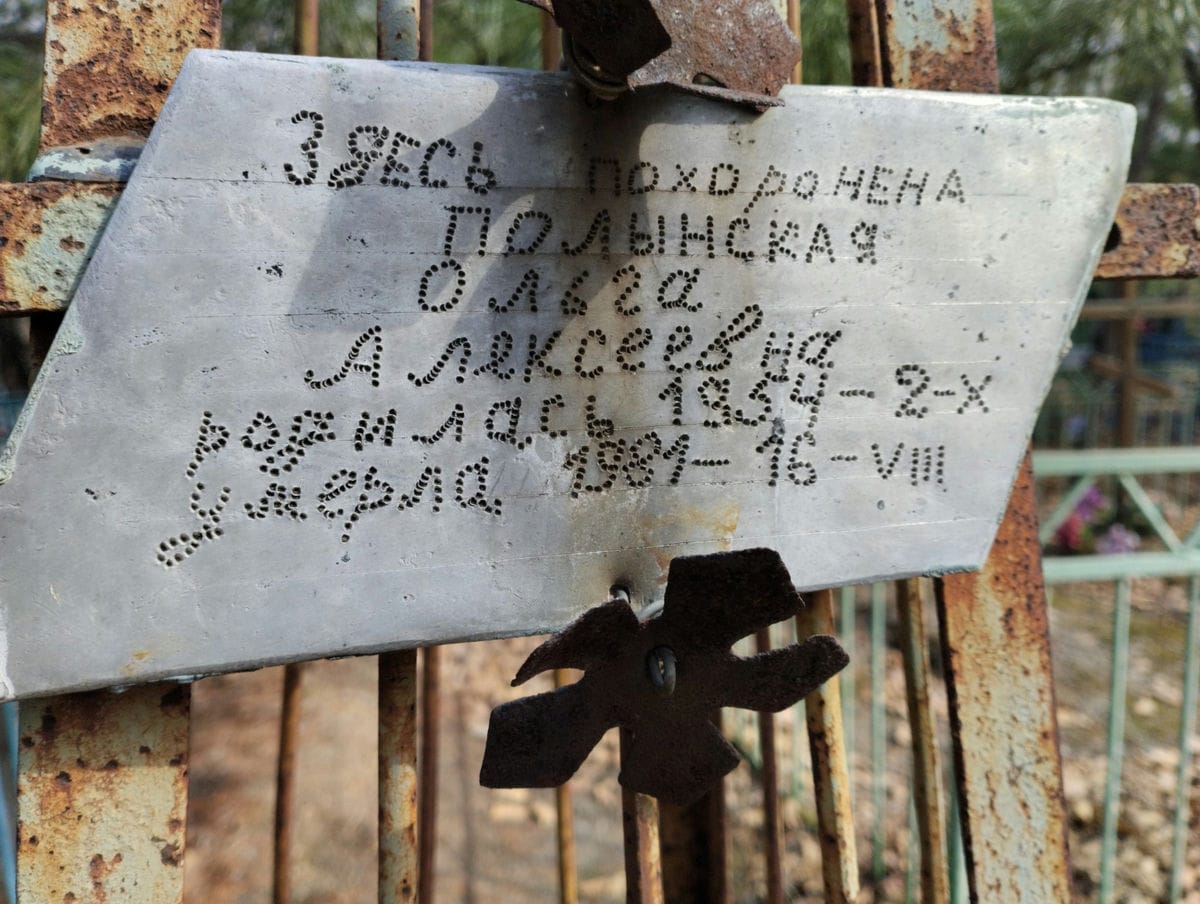 ЗДЕСЬ ПОХОРОНЕНА
ПОЛЫНСКАЯ
Ольга
Алексеевна
родилась 1954-2-X
умерла 1981-16-VIII